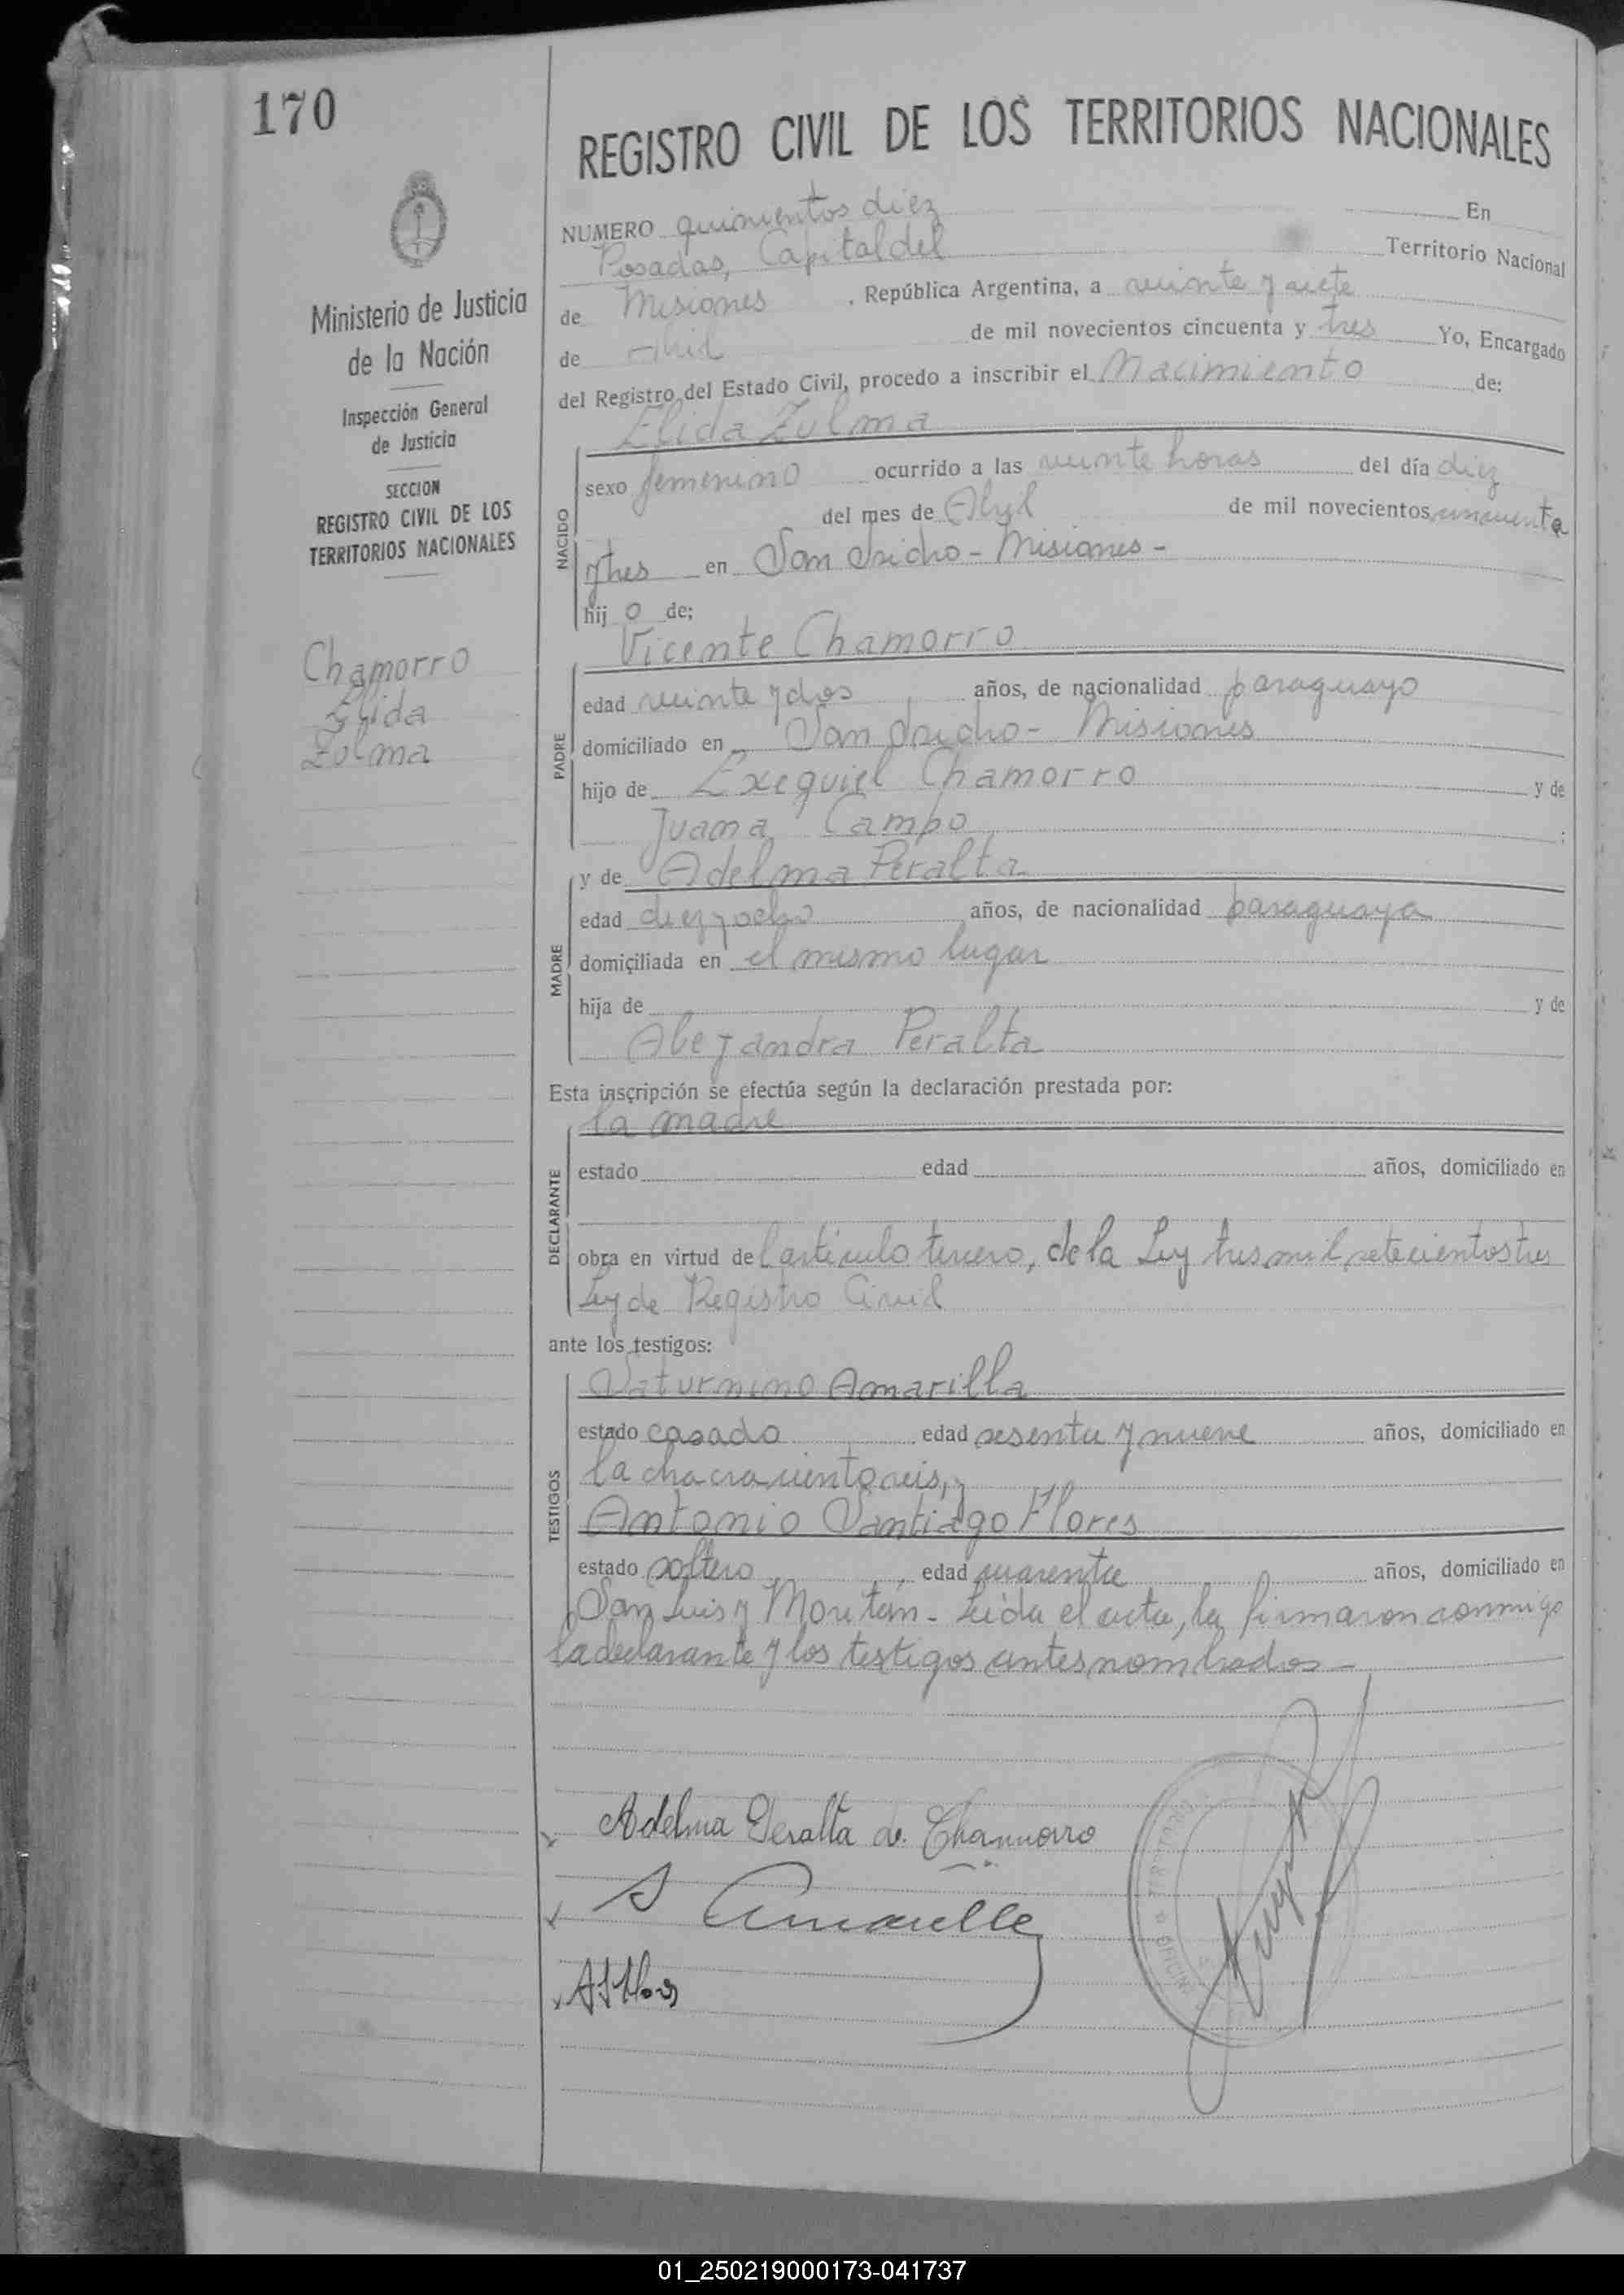 170
REGISTRO CIVIL DE LOS TERRITORIOS NACIONALES
Ministerio de Justicia
de la Nación
Inspección General
de Justicia
SECCION
REGISTRO CIVIL DE LOS
TERRITORIOS NACIONALES
Chamorro
Elida
Zulma
NUMERO quinientos diez En
Posadas, Capital del Territorio Nacional
de Misiones, República Argentina, a veinte y siete
de Abril de mil novecientos cincuenta y tres Yo, Encargado
del Registro del Estado Civil, procedo a inscribir el Nacimiento de:
Elida Zulma
NACIDO
sexo femenino ocurrido a las veinte horas del día diez
del mes de Abril de mil novecientos cincuenta
y tres en San Isidro - Misiones -
hij o de;
Vicente Chamorro
PADRE
edad veinte y dos años, de nacionalidad paraguayo
domiciliado en San Isidro - Misiones
hijo de Exequiel Chamorro y de
Juana Campo ;
y de Adelma Peralta
MADRE
edad diez y ocho años, de nacionalidad paraguaya
domiciliada en el mismo lugar
hija de y de
Alejandra Peralta
Esta inscripción se efectúa según la declaración prestada por:
la madre
DECLARANTE
estado edad años, domiciliado en
obra en virtud del artículo tercero, de la Ley tres mil setecientos tres
Ley de Registro Civil
ante los testigos:
Saturnino Amarilla
TESTIGOS
estado casado edad sesenta y nueve años, domiciliado en
la chacra ciento seis, y
Antonio Santiago Flores
estado soltero, edad cuarenta años, domiciliado en
San Luis y Moritán - Leída el acta, la firmaron conmigo
la declarante y los testigos antes nombrados -
Adelma Peralta de Chamorro
S Amarilla
AS Flores
OFICINA
01_250219000173-041737